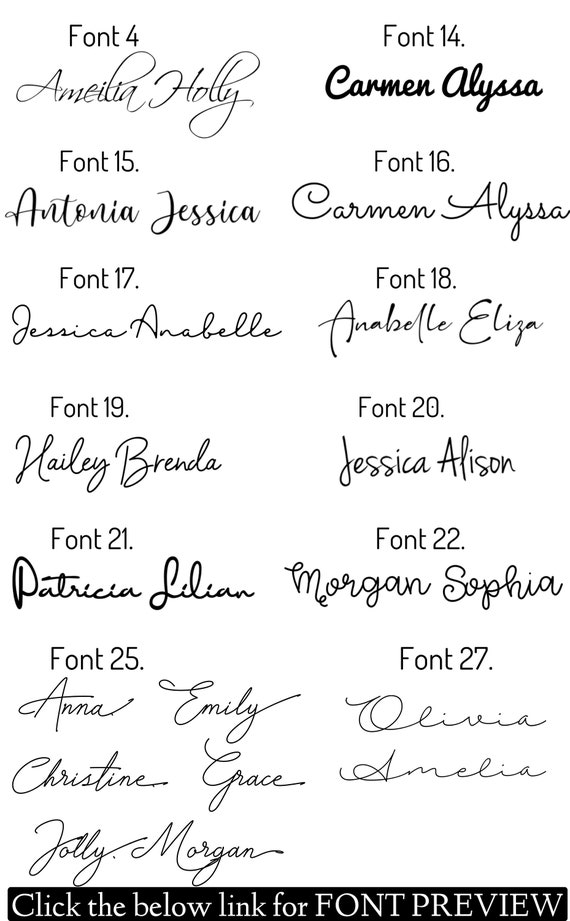 Font 4
Font 14.
Ameilia Holly
Carmen Alyssa
Font 15.
Font 16.
Antonia Jessica
Carmen Alyssa
Font 17.
Font 18.
Jessica Anabelle
Anabelle Eliza
Font 19.
Font 20.
Hailey Brenda
Jessica Alison
Font 21.
Font 22.
Patricia Lilian
Morgan Sophia
Font 25.
Font 27.
Anna Emily
Olivia
Christine Grace
Amelia
Jolly. Morgan
Click the below link for FONT PREVIEW